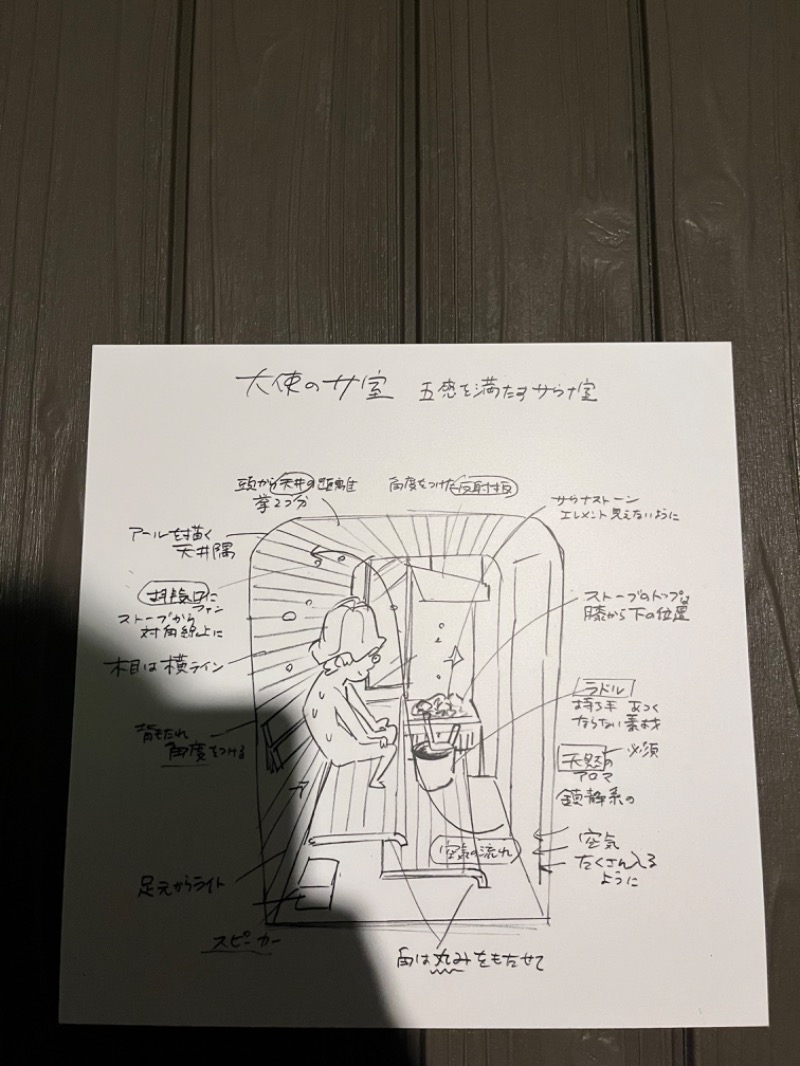 大使のサ室 五感を満たすサウナ室
頭から天井の距離
拳2つ分
角度をつけた反射板
サウナストーン
エレメント見えないように
アールを描く
天井隅
排気口に
ファン
ストーブから
対角線上に
木目は横ライン
ストーブのトップは
膝から下の位置
ラドル
持ち手 あつく
ならない素材
必須
背もたれ
角度をつける
天然の
アロマ
鎮静系の
空気の流れ
空気
たくさん入る
ように
足元からライト
スピーカー
角は丸みをもたせて